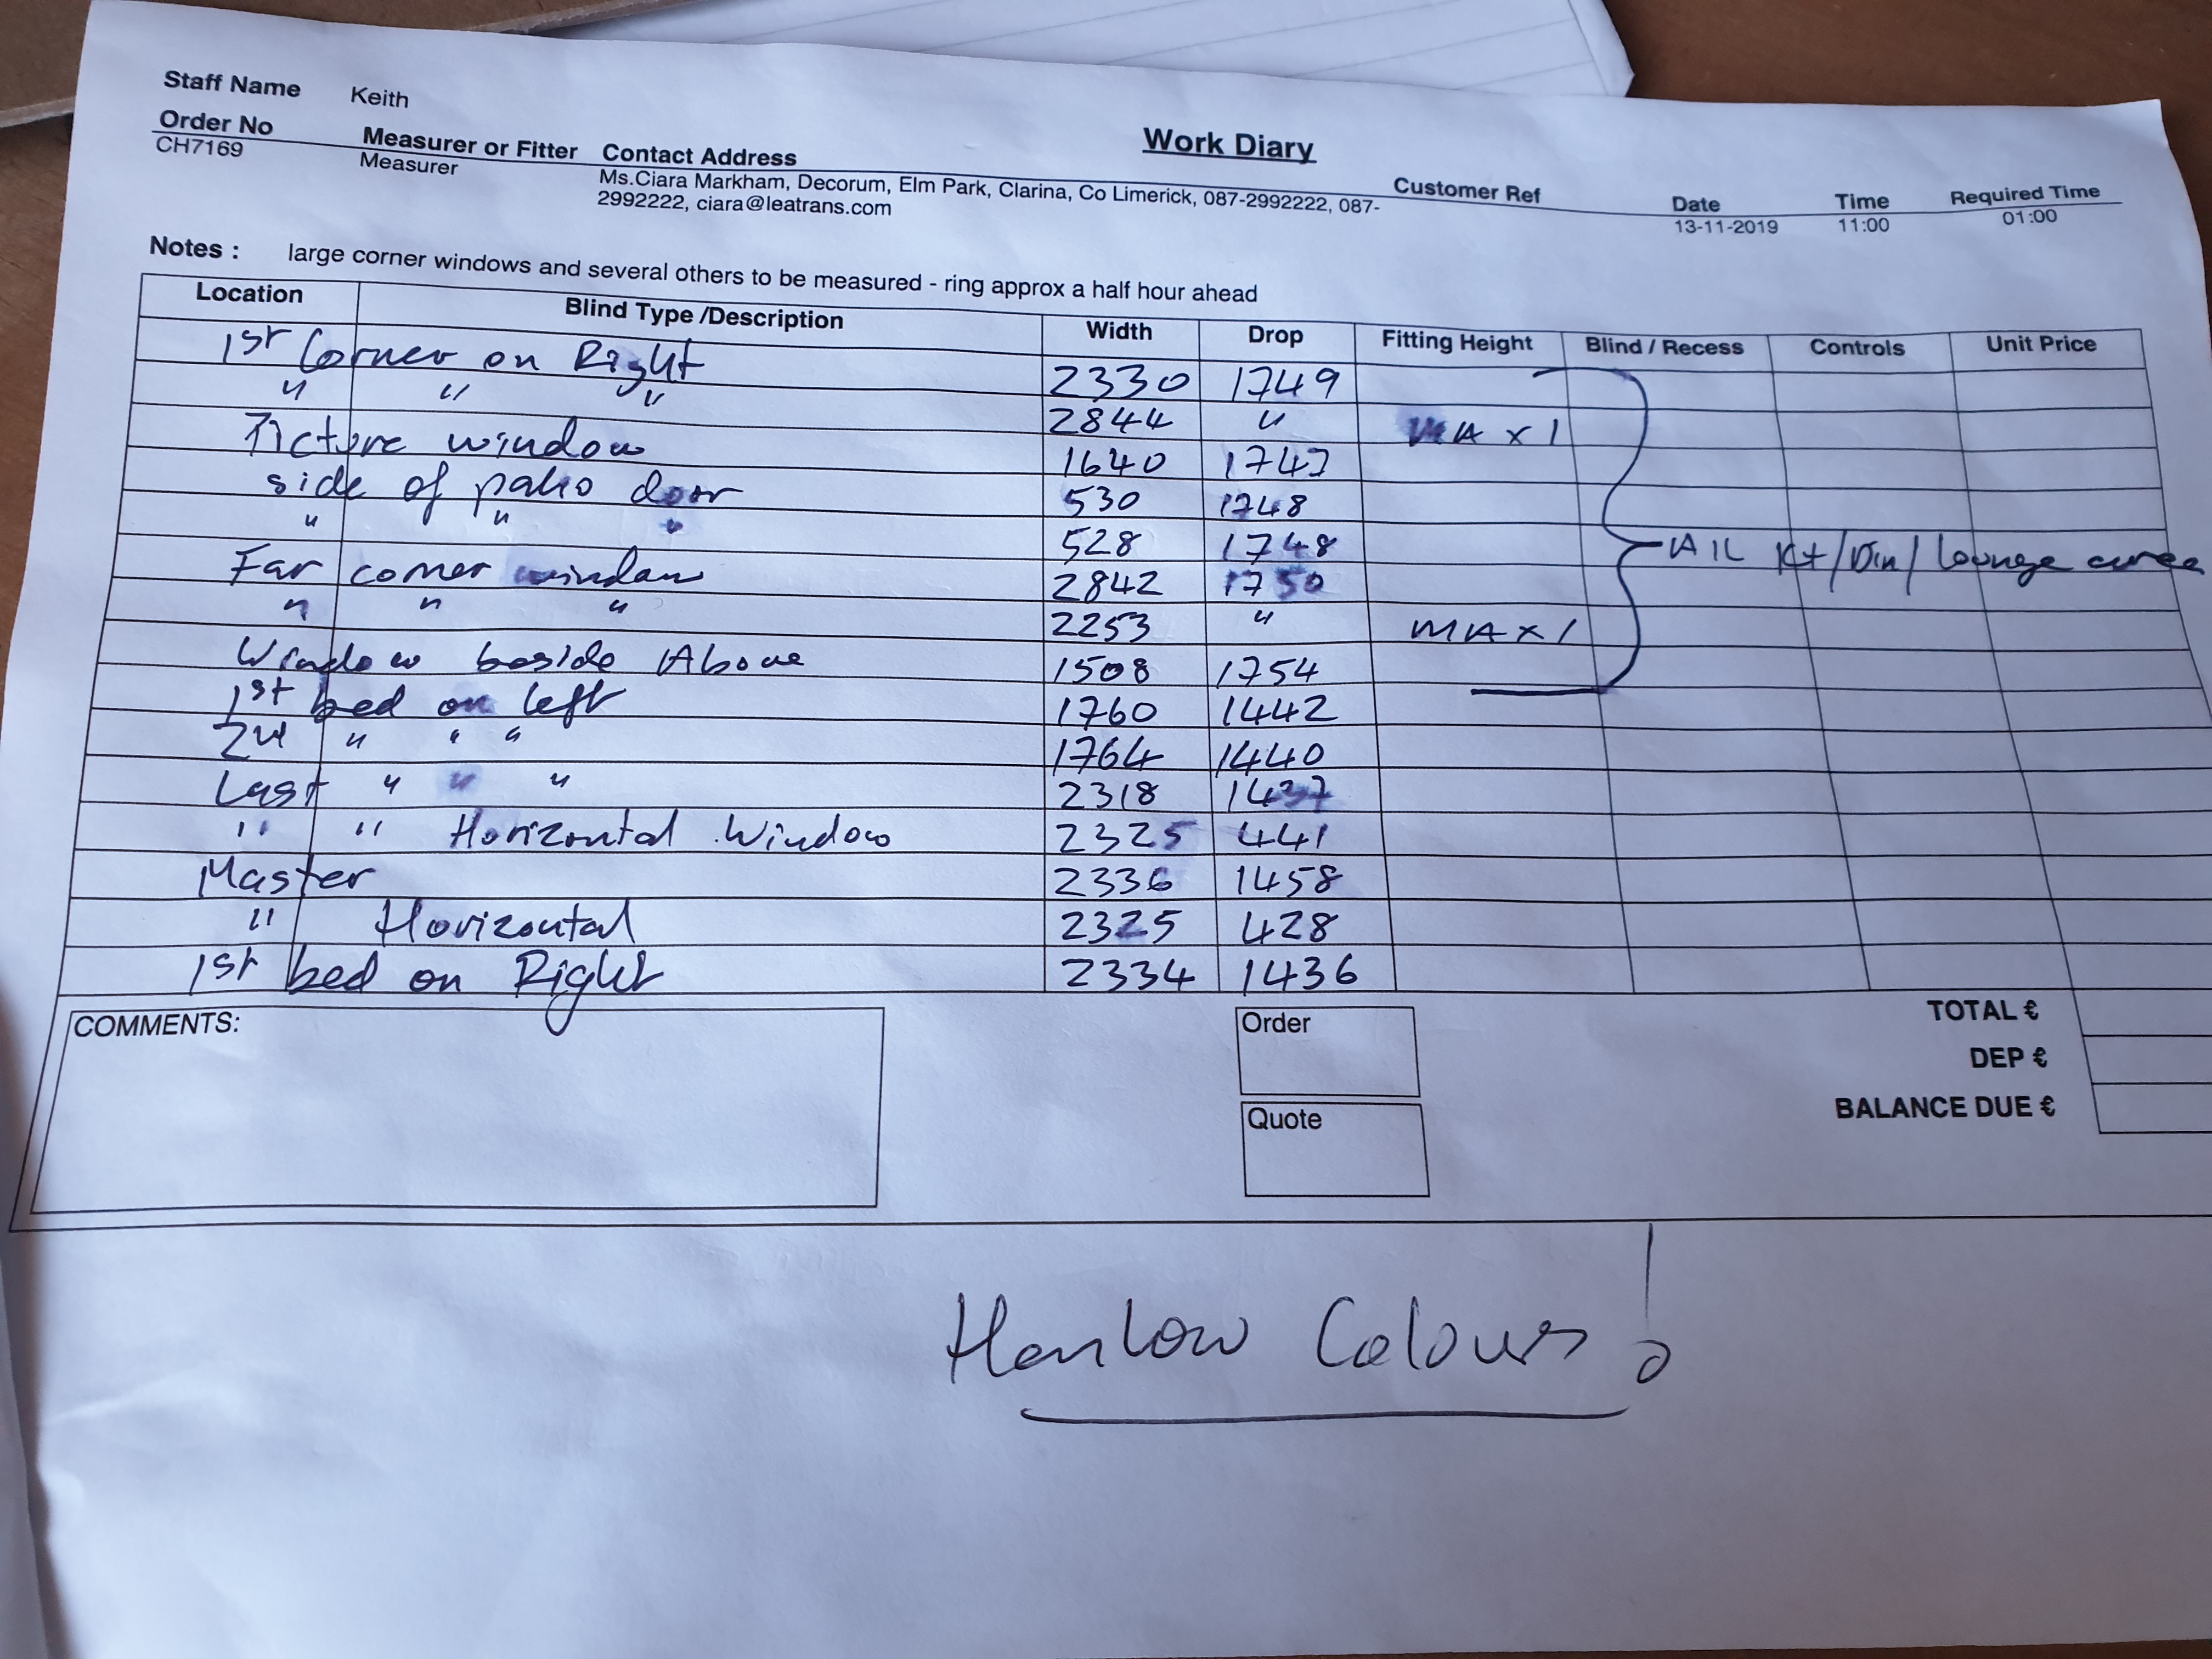 Staff Name Keith
Work Diary
Order No Measurer or Fitter Contact Address Customer Ref Date Time Required Time
CH7169 Measurer Ms.Ciara Markham, Decorum, Elm Park, Clarina, Co Limerick, 087-2992222, 087- 13-11-2019 11:00 01:00
2992222, ciara@leatrans.com
Notes : large corner windows and several others to be measured - ring approx a half hour ahead
Location Blind Type /Description Width Drop Fitting Height Blind / Recess Controls Unit Price
1st Corner on Right 2330 1749
" " " 2844 " MAX 1
Picture window 1640 1747
side of patio door 530 1748
" " " 528 1748
All Kt/Din/ lounge area
Far corner window 2842 1750
" " " 2253 " MAX 1
Window beside Above 1508 1754
1st bed on left 1760 1442
2nd " " " 1764 1440
Last " " " 2318 1437
" " Horizontal Window 2325 441
Master 2336 1458
" Horizontal 2325 428
1st bed on Right 2334 1436
COMMENTS:
Order
Quote
TOTAL €
DEP €
BALANCE DUE €
Harlow Colours!